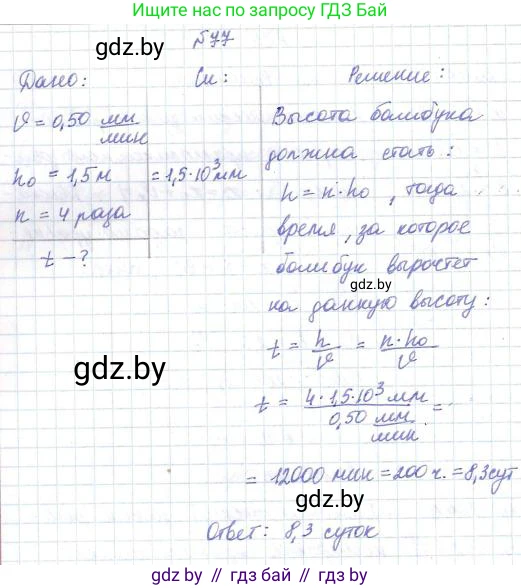 Ищите нас по запросу ГДЗ Бай
gdz.by
№77
Дано: Си: Решение:
𝒱 = 0,50 мм/мин
h₀ = 1,5 м = 1,5·10³ мм
n = 4 раза
t - ?
Высота бамбука
должна стать:
h = n·h₀, тогда
время, за которое
gdz.by
бамбук вырастет
на данную высоту:
gdz.by
t = h/𝒱 = n·h₀/𝒱
t = 4·1,5·10³ мм / 0,50 мм/мин =
= 12000 мин = 200 ч. = 8,3 сут
gdz.by
Ответ: 8,3 суток
gdz.by // гдз.бай // gdz.by